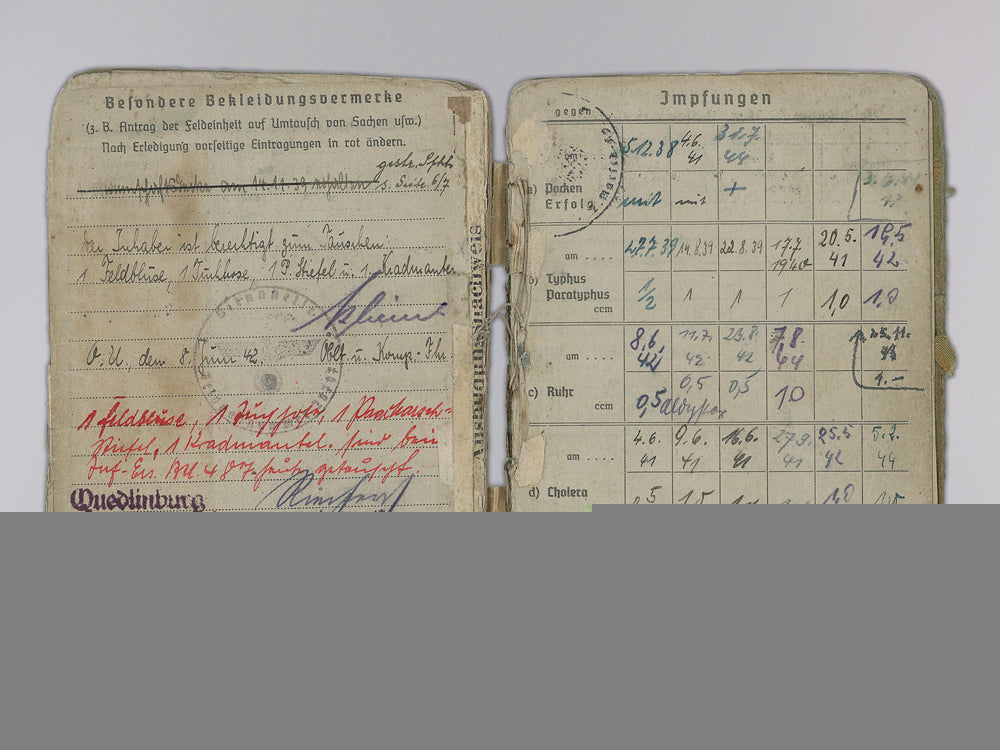 Besondere Bekleidungsvermerke
(z. B. Antrag der Feldeinheit auf Umtausch von Sachen usw.)
Nach Erledigung vorseitige Eintragungen in rot ändern.
gestr.
am 14.11.39 erhalten s. Seite 6/7
Der Inhaber ist berechtigt zum Tauschen
1 Feldbluse, 1 Tuchhose, 1 P. Stiefel u. 1 Kradmantel
O.U., den 8. Juni 42. Oblt u. Komp.-Fhr.
1 Feldbluse, 1 Tuchhose, 1
Stiefel, 1 Kradmantel. sind bei
Inf. Ers. Btl. 487 getauscht.
Quedlinburg
Ausrüstungsnachweis
Impfungen
gegen
am 5.12.38 4.6. 41 31.7. 44
a) Pocken
Erfolg mit mit +
am .... 27.7.39 14.8.39 22.8.39 17.7 1940 20.5. 41 19.5 42
b) Typhus
Paratyphus
ccm 1/2 1 1 1 1,0 1.0
am .... 8.6. 42 11.7. 42 23.8 42 7.8. 44
c) Ruhr
ccm 0,5 0,5 0,5 1.0
am .... 4.6. 41 9.6. 41 16.6. 41 27.9. 41 25.5 42 5.2. 44
d) Cholera